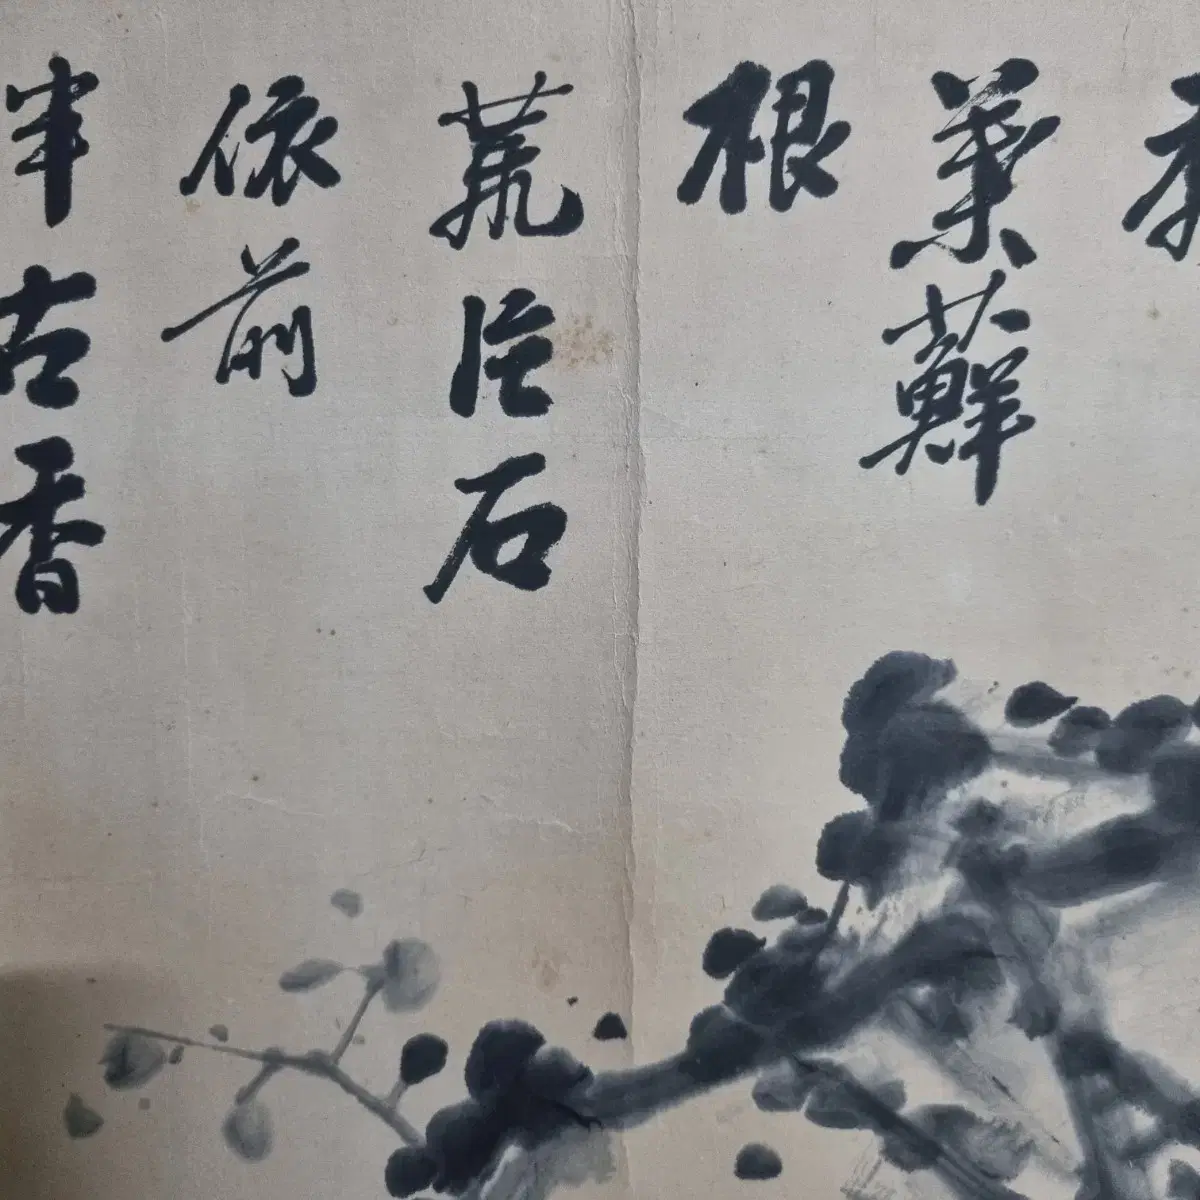 葉蘚
根
荒
石
依前
古香